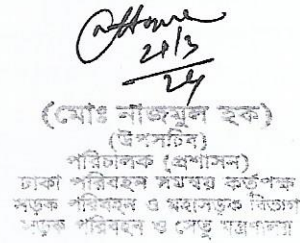 21/3
24
(মোঃ নাজমুল হক)
(উপসচিব)
পরিচালক (প্রশাসন)
ঢাকা পরিবহন সমন্বয় কর্তৃপক্ষ
সড়ক পরিবহন ও মহাসড়ক বিভাগ
সড়ক পরিবহন ও সেতু মন্ত্রণালয়